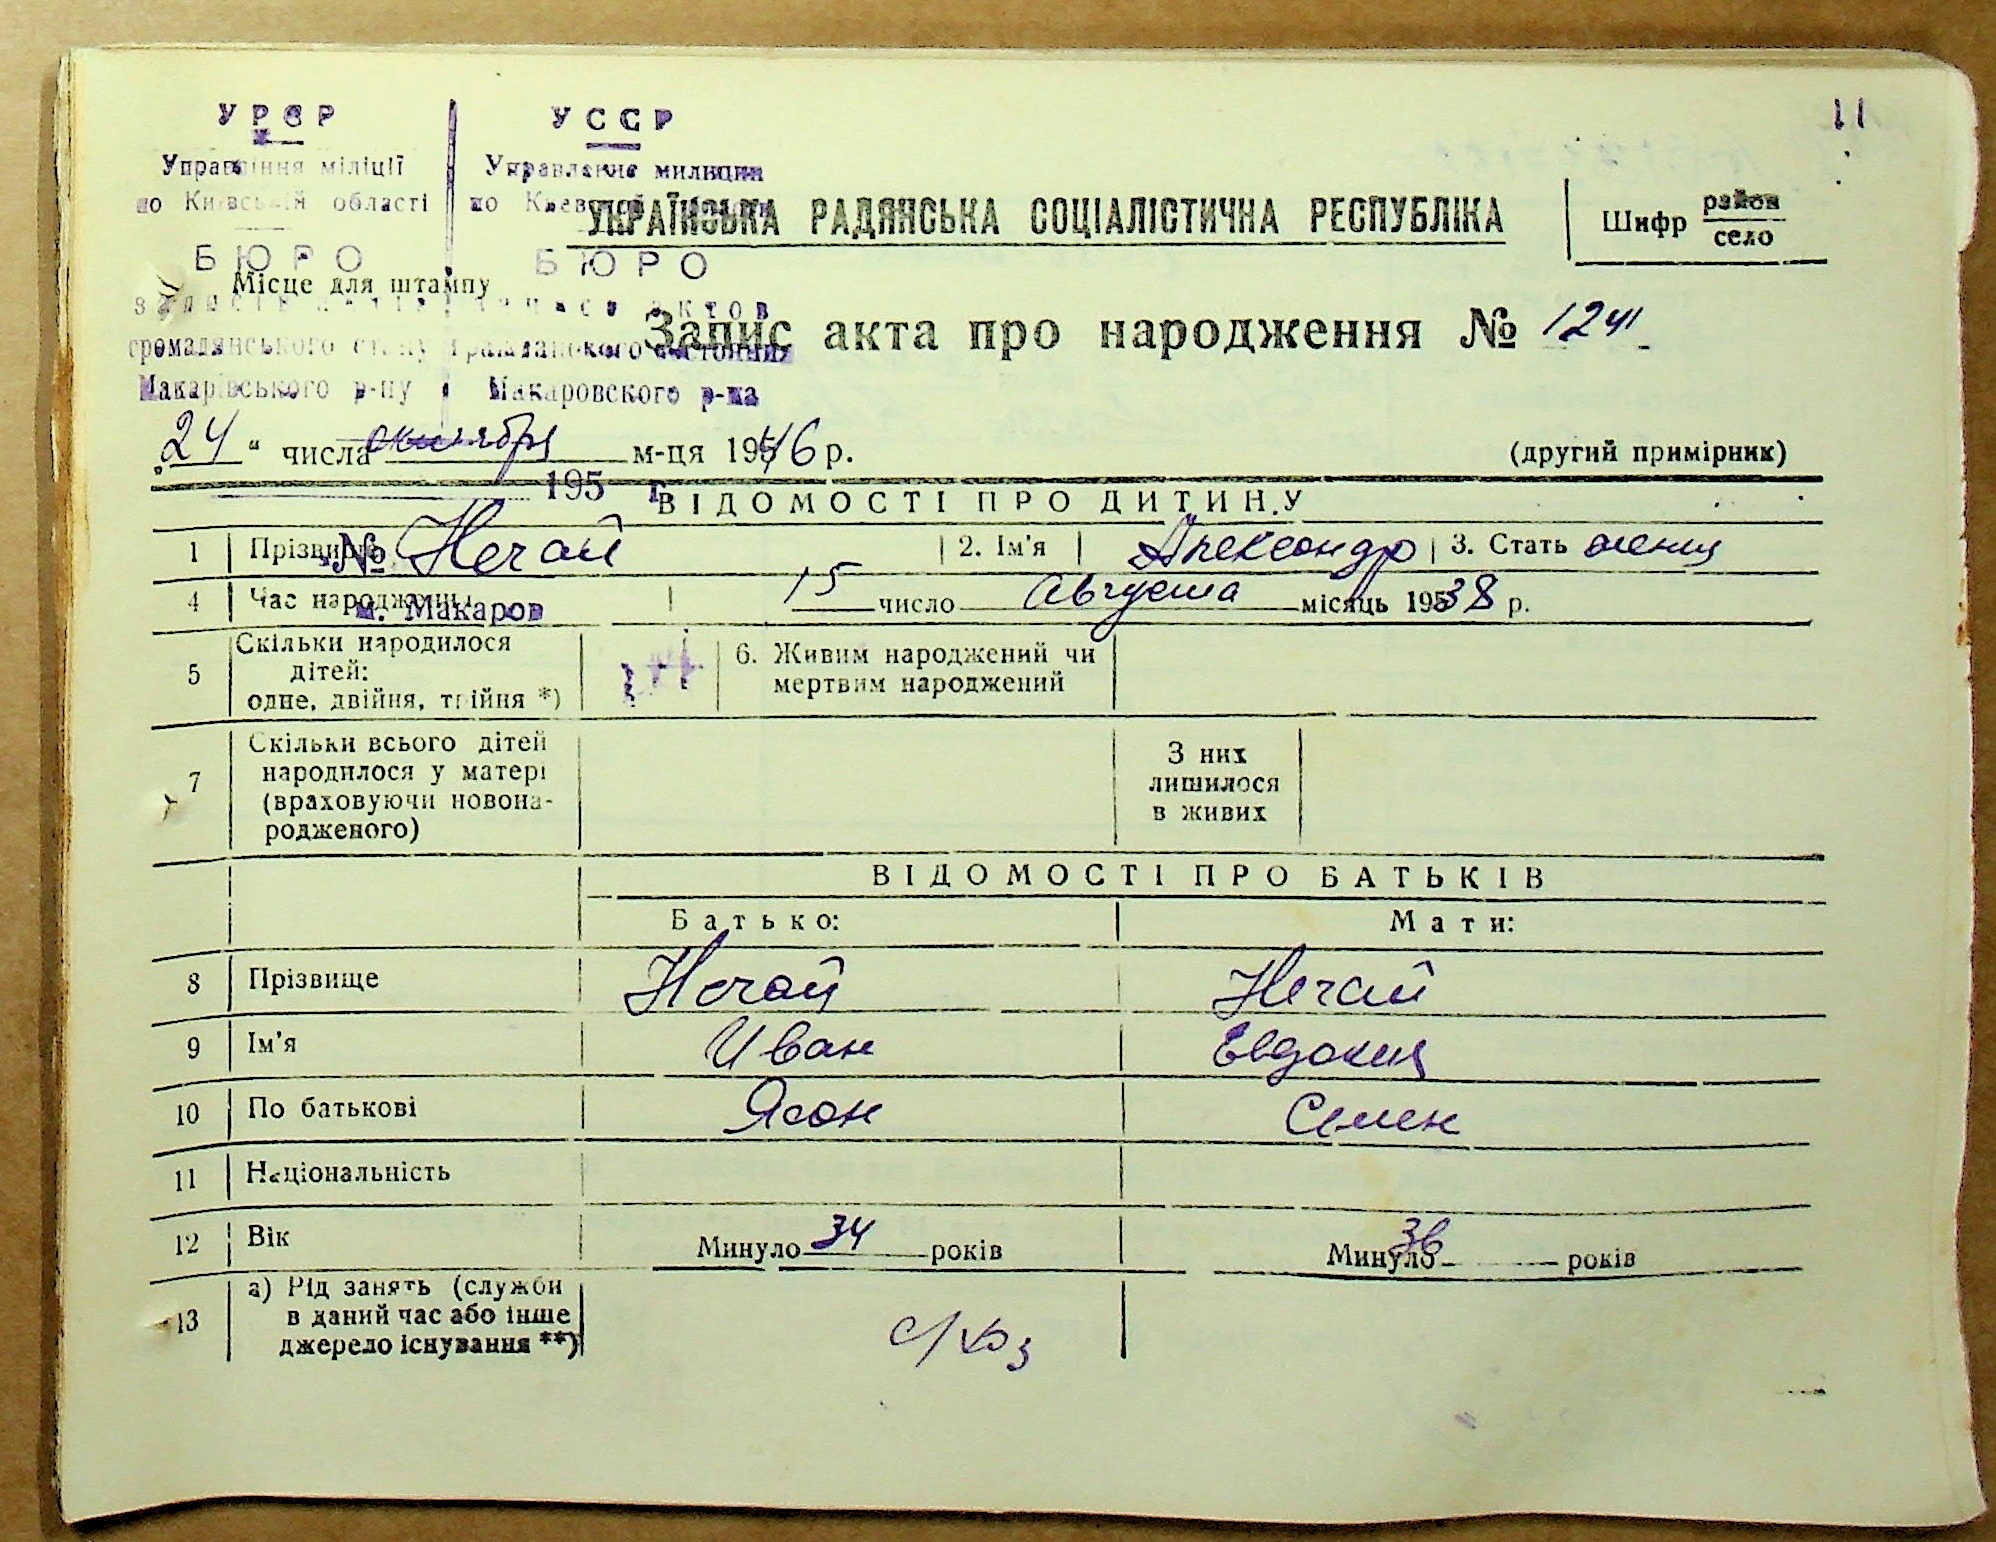 УРСР
УССР
11
Управління міліції
Управление милиции
по Київській області
по Киевской
УКРАЇНСЬКА РАДЯНСЬКА СОЦІАЛІСТИЧНА РЕСПУБЛІКА
Шифр район село
БЮРО
БЮРО
Місце для штампу
записів актів
записи актов
Запис акта про народження №
громадянського стану
гражданского состояния
Макарівського р-ну
Макаровского р-на
"24" числа октября м-ця 1946 р.
(другий примірник)
195 г.
ВІДОМОСТІ ПРО ДИТИНУ
1 Прізвище Нечай 2. Ім'я Александр 3. Стать
№
4 Час народження 15 число Августа місяць 1938 р.
м. Макаров
5 Скільки народилося дітей: одне, двійня, трійня *)
6. Живим народжений чи мертвим народжений
7 Скільки всього дітей народилося у матері (враховуючи новона-родженого)
З них лишилося в живих
ВІДОМОСТІ ПРО БАТЬКІВ
Батько: Мати:
8 Прізвище Нечай Нечай
9 Ім'я Иван Евдокия
10 По батькові Ясон Семен
11 Національність
12 Вік Минуло 34 років Минуло 36 років
13 а) Рід занять (служби в даний час або інше джерело існування **)